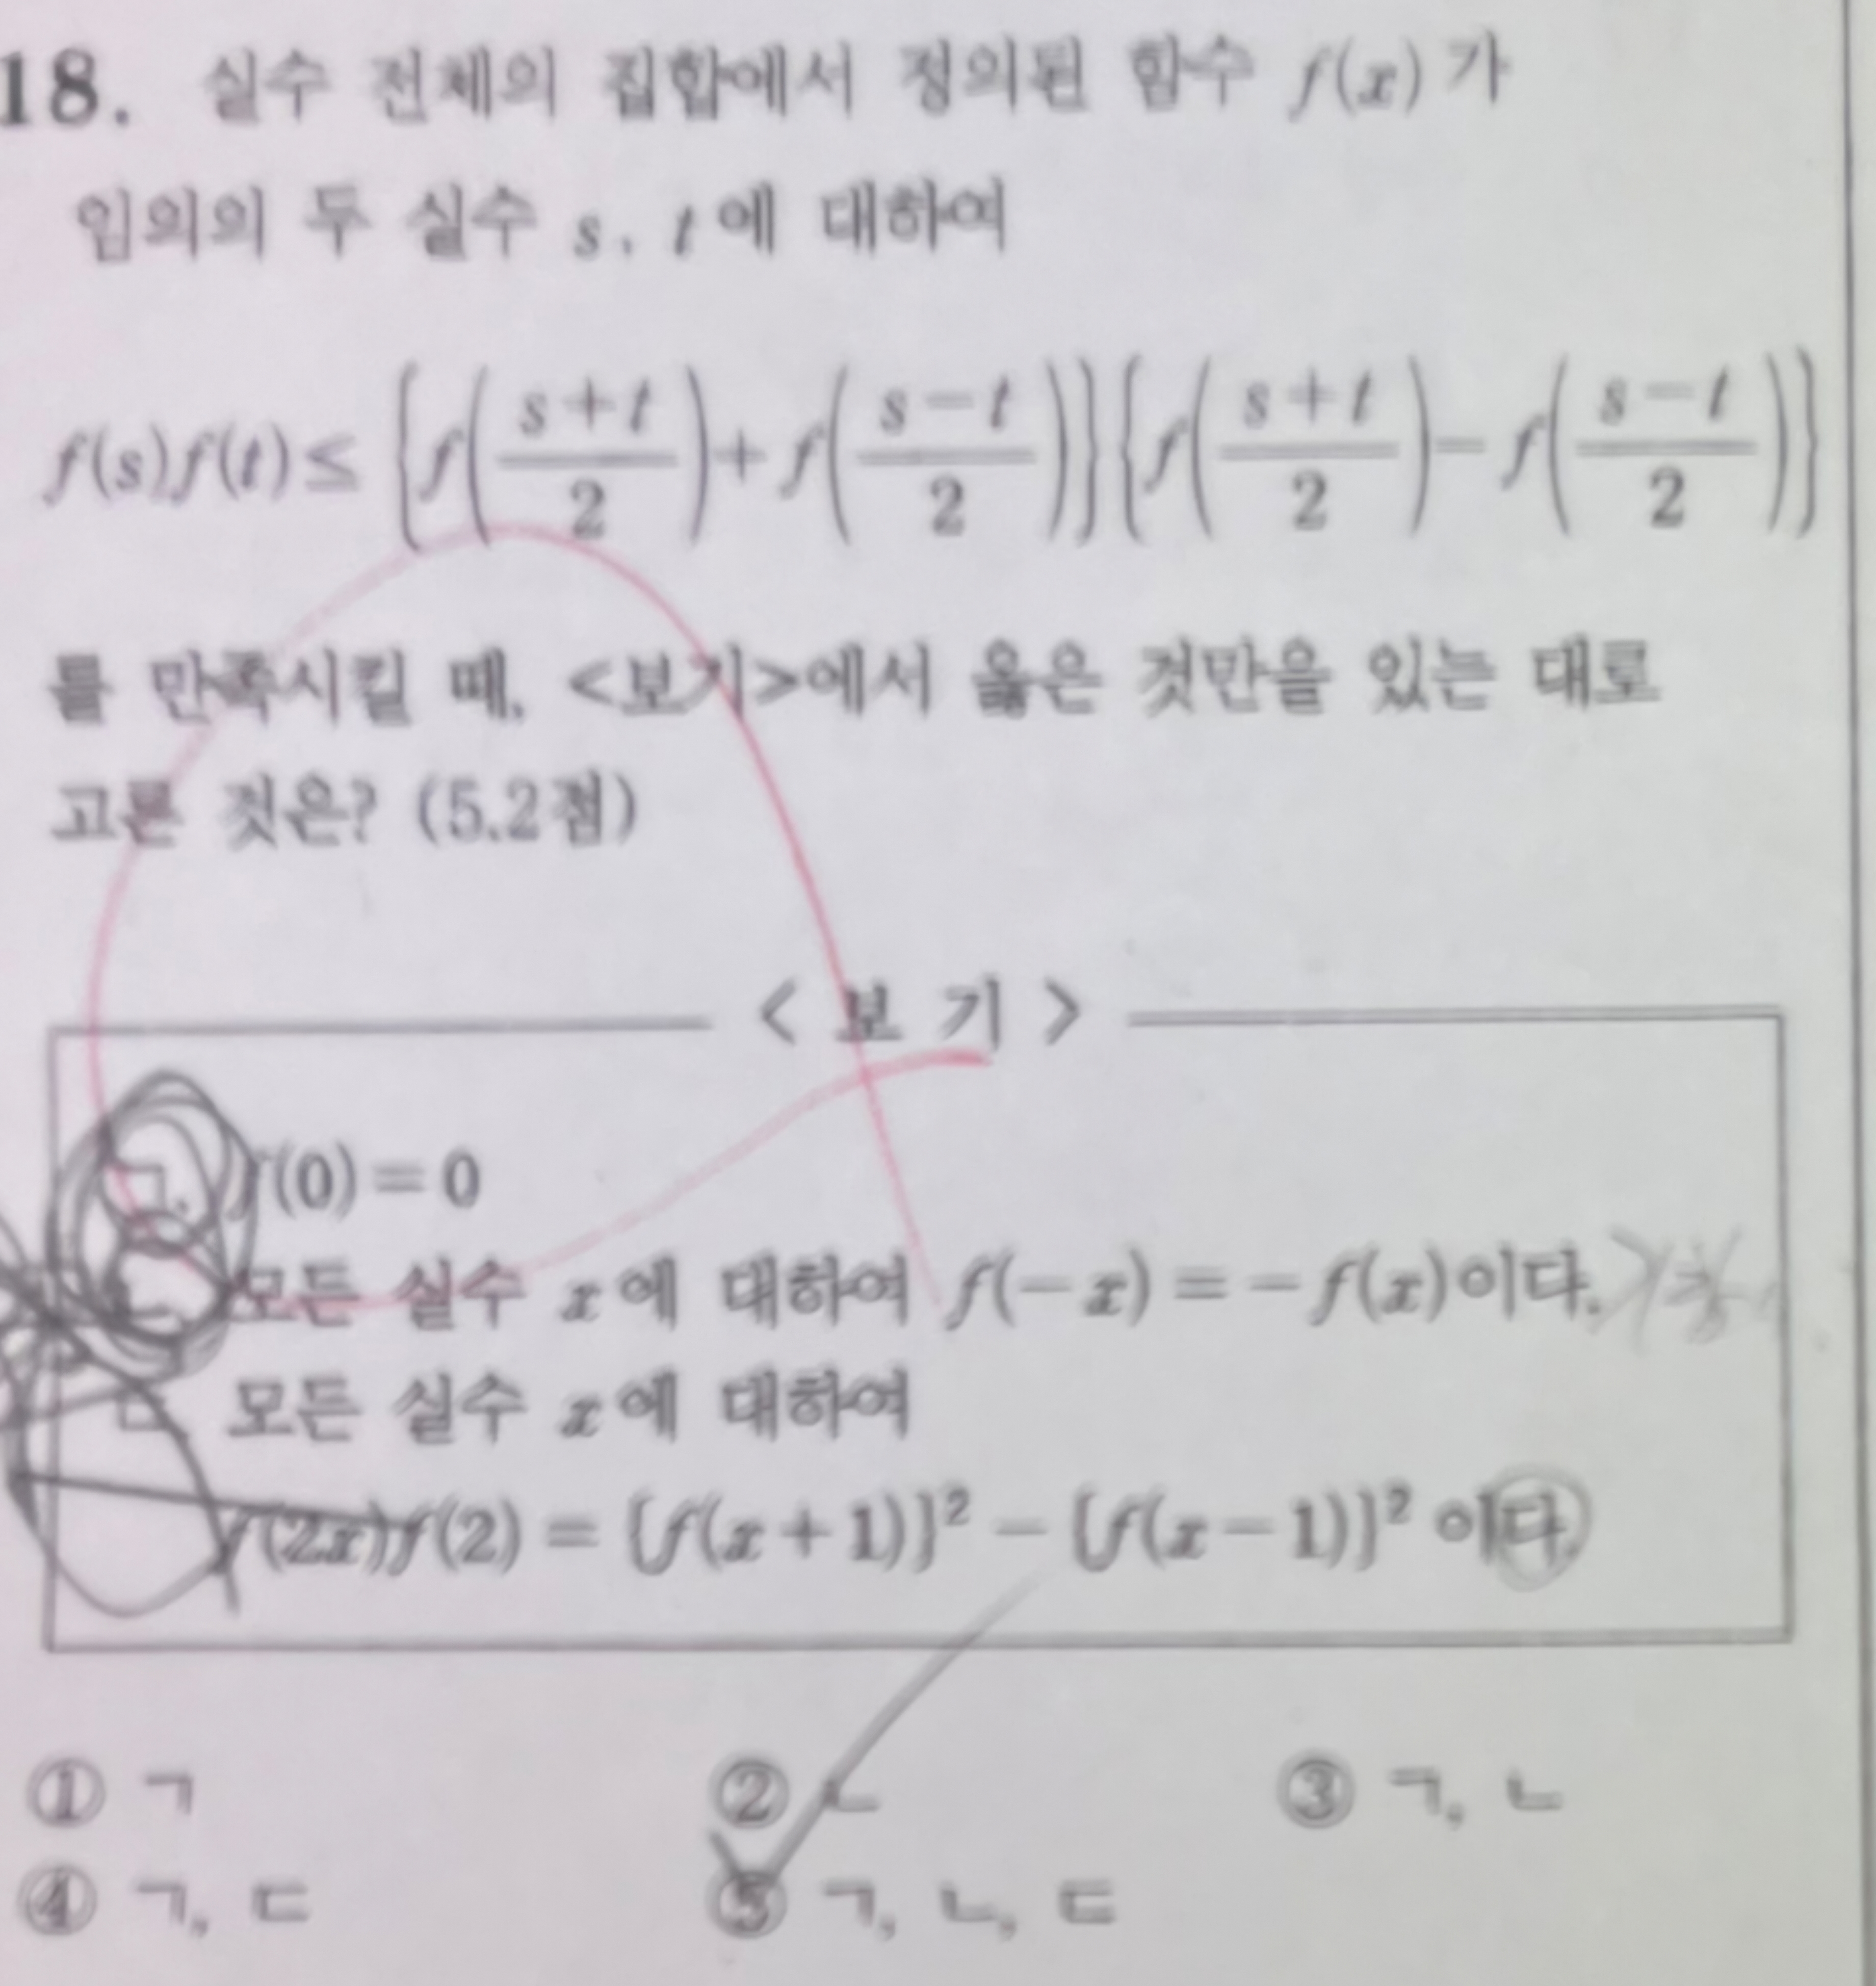 18. 실수 전체의 집합에서 정의된 함수 f(x)가
임의의 두 실수 s, t에 대하여
f(s)f(t) ≤ {f((s+t)/2)+f((s-t)/2)}{f((s+t)/2)-f((s-t)/2)}
를 만족시킬 때, <보기>에서 옳은 것만을 있는 대로
고른 것은? (5.2점)
< 보 기 >
ㄱ. f(0)=0
ㄴ. 모든 실수 x에 대하여 f(-x)=-f(x)이다.
ㄷ. 모든 실수 x에 대하여
f(2x)f(2)={f(x+1)}²-{f(x-1)}²이다.
① ㄱ ② ㄴ ③ ㄱ, ㄴ
④ ㄱ, ㄷ ⑤ ㄱ, ㄴ, ㄷ